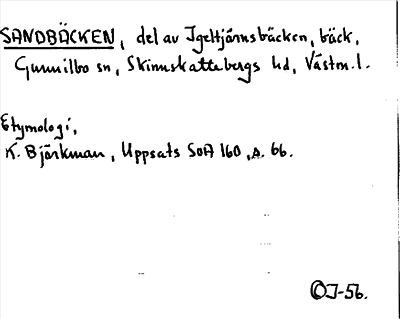 SANDBÄCKEN, del av Igeltjärnsbäcken, bäck,
Gunnilbo sn, Skinnskattebergs hd, Västm.l.
Etymologi,
K. Björkman, Uppsats SOA 160, s. 66.
OJ-56.